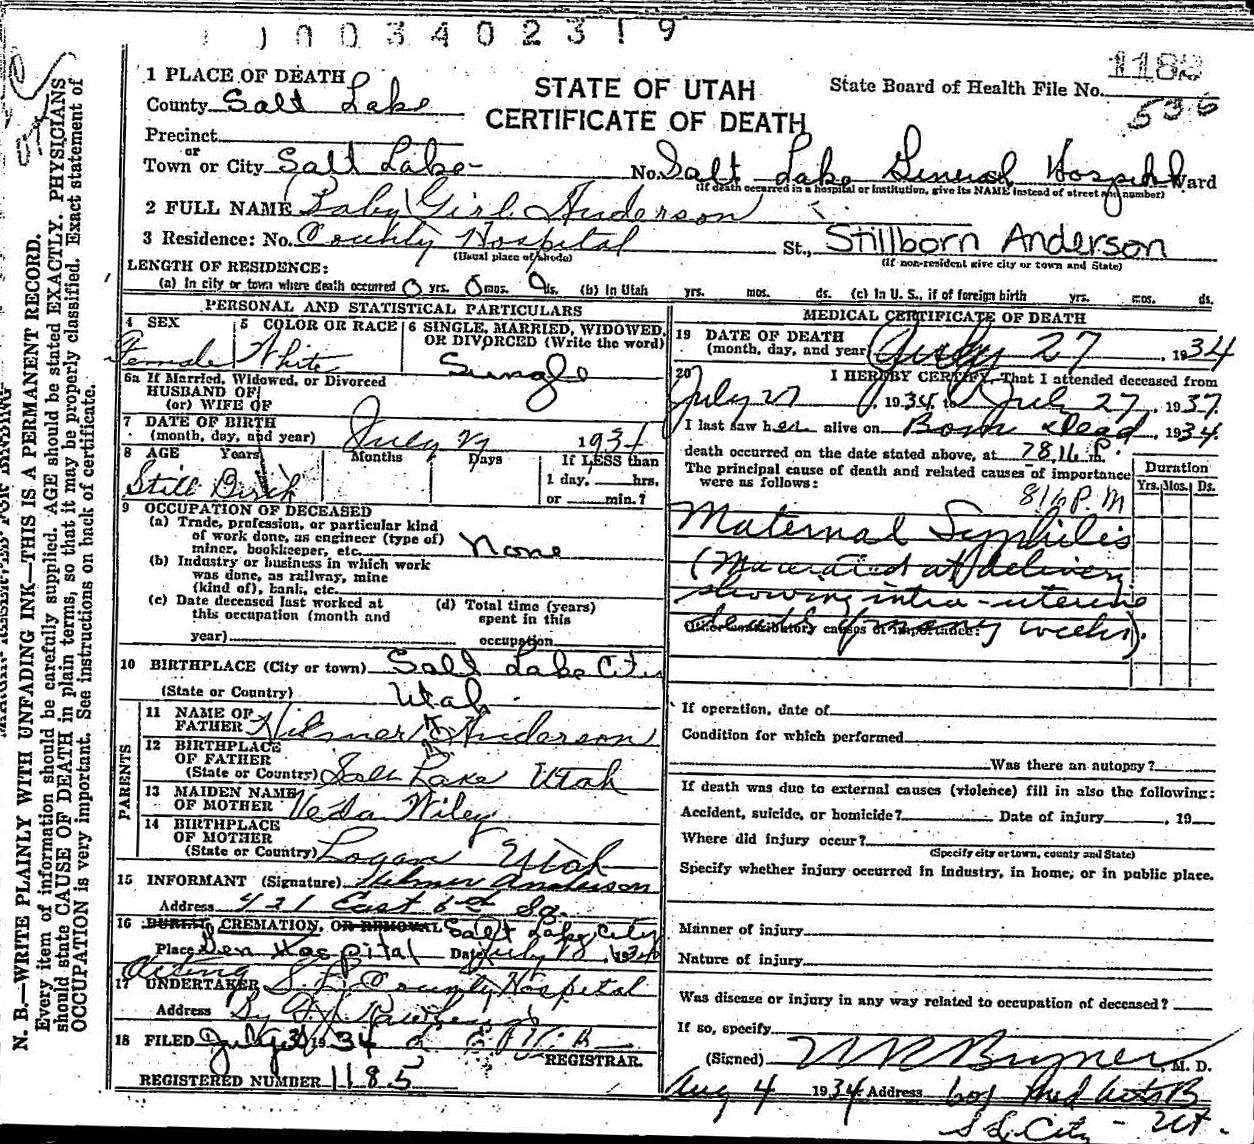 0 0 3 4 0 2 3 1 9
1182
536
STATE OF UTAH
CERTIFICATE OF DEATH
State Board of Health File No.
1 PLACE OF DEATH
County Salt Lake
Precinct
or
Town or City Salt Lake No. Salt Lake General Hospital Ward
(If death occurred in a hospital or institution, give its NAME instead of street and number)
2 FULL NAME Baby Girl Anderson
3 Residence: No. County Hospital St., Stillborn Anderson
(Usual place of abode) (If non-resident give city or town and State)
LENGTH OF RESIDENCE:
(a) In city or town where death occurred 0 yrs. 0 mos. 0 ds. (b) In Utah yrs. mos. ds. (c) In U. S., if of foreign birth yrs. mos. ds.
PERSONAL AND STATISTICAL PARTICULARS
4 SEX Female
5 COLOR OR RACE White
6 SINGLE, MARRIED, WIDOWED, OR DIVORCED (Write the word) Single
6a If Married, Widowed, or Divorced
HUSBAND OF
(or) WIFE OF
7 DATE OF BIRTH
(month, day, and year) July 27 1934
8 AGE Years Months Days If LESS than
1 day, hrs.
or min.?
Still Birth
9 OCCUPATION OF DECEASED
(a) Trade, profession, or particular kind
of work done, as engineer (type of)
miner, bookkeeper, etc. None
(b) Industry or business in which work
was done, as railway, mine
(kind of), bank, etc.
(c) Date deceased last worked at
this occupation (month and
year)
(d) Total time (years)
spent in this
occupation
10 BIRTHPLACE (City or town) Salt Lake City
(State or Country) Utah
PARENTS
11 NAME OF
FATHER Hilmer Anderson
12 BIRTHPLACE
OF FATHER
(State or Country) Salt Lake Utah
13 MAIDEN NAME
OF MOTHER Veda Wiley
14 BIRTHPLACE
OF MOTHER
(State or Country) Logan Utah
15 INFORMANT (Signature) Hilmer Anderson
Address 421 East 6th So.
16 BURIAL, CREMATION, OR REMOVAL Salt Lake City
Place Gen Hospital Date July 1934
Acting
17 UNDERTAKER S. L. County Hospital
Address By
18 FILED July 31 1934
REGISTRAR.
REGISTERED NUMBER 1185
MEDICAL CERTIFICATE OF DEATH
19 DATE OF DEATH
(month, day, and year) July 27, 1934
20 I HEREBY CERTIFY, That I attended deceased from
July 27, 1934 to July 27, 1934.
I last saw her alive on Born dead, 1934.
death occurred on the date stated above, at m.
The principal cause of death and related causes of importance
were as follows:
Duration
Yrs. Mos. Ds.
816 P.M
Maternal Syphilis
(Macerated at delivery
showing intra-uterine
death of many weeks).
Other contributory causes of importance:
If operation, date of
Condition for which performed
Was there an autopsy?
If death was due to external causes (violence) fill in also the following:
Accident, suicide, or homicide? Date of injury , 19
Where did injury occur?
(Specify city or town, county and State)
Specify whether injury occurred in industry, in home, or in public place.
Manner of injury
Nature of injury
Was disease or injury in any way related to occupation of deceased?
If so, specify
(Signed) M. D.
Aug 4 1934 Address Med Arts B
S L City - Ut.
N. B.—WRITE PLAINLY WITH UNFADING INK—THIS IS A PERMANENT RECORD.
Every item of information should be carefully supplied. AGE should be stated EXACTLY. PHYSICIANS
should state CAUSE OF DEATH in plain terms, so that it may be properly classified. Exact statement of
OCCUPATION is very important. See instructions on back of certificate.